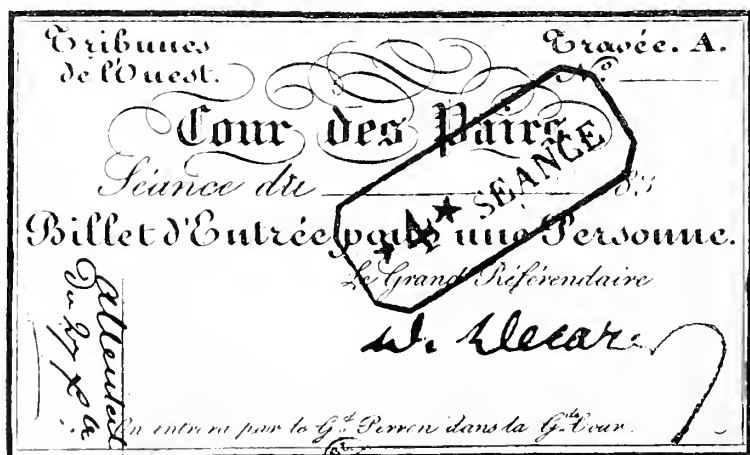 Tribunes
de l'Ouest.
Travée. A.
N.º
Cour des Pairs
Séance du 183
★ 4 ★ SÉANCE
Billet d'Entrée pour une Personne.
Le Grand Référendaire
attentat
du 27
On entrera par le G.d Perron dans la G.de Cour.